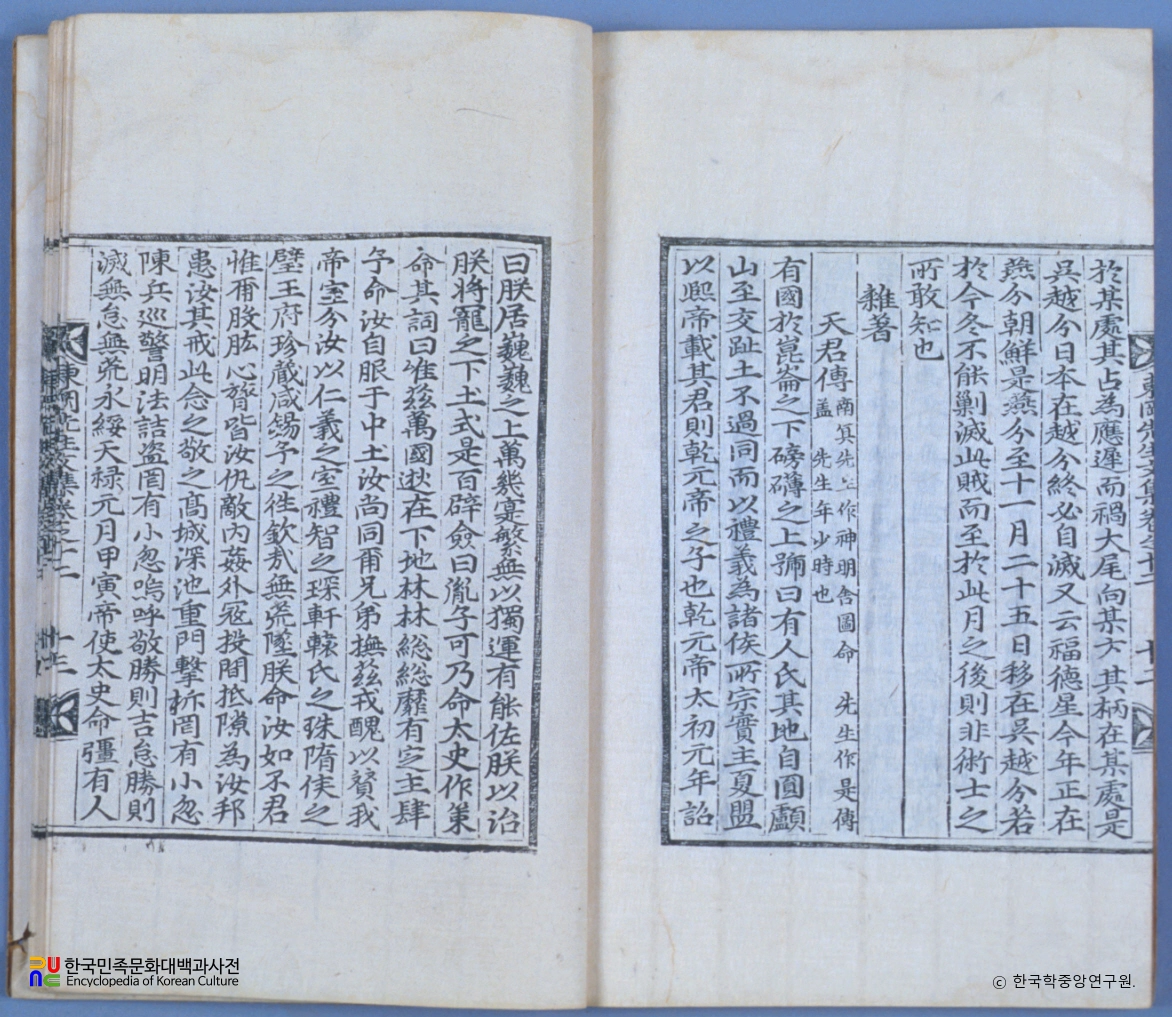 東岡先生文集卷之十六 十二
於某處其占為應遲而禍大尾向某方其柄在某處是
吳越分日本在越分終必自滅又云福德星今年正在
燕分朝鮮是燕分至十一月二十五日移在吳越分若
於今冬不能剿滅此賊而至於此月之後則非術士之
所敢知也
雜著
天君傳 南冥先生作神明舍圖命 先生作是傳
盖 先生年少時也
有國於崑崙之下磅礴之上號曰有人氏其地自圓顱
山至交趾土不過同而以禮義為諸侯所宗實主夏盟
以熙帝載其君則乾元帝之子也乾元帝太初元年詔
曰朕居巍巍之上萬幾寔繁無以獨運有能佐朕以治
朕將寵之下土式是百辟僉曰胤子可乃命太史作策
命其詞曰惟茲萬國逖在下地林林総総靡有定主肆
予命汝自服于中土汝尚同爾兄弟撫茲戎醜以贊我
帝室分汝以仁義之室禮智之琛軒轅氏之珠隋侯之
璧王府珍藏咸錫予之徃欽哉無荒墜朕命汝如不君
惟爾股肱心膂皆汝仇敵內姦外寇投間抵隙為汝邦
患汝其戒此念之敬之高城深池重門擊柝罔有小忽
陳兵巡警明法詰盜罔有小忽嗚呼敬勝則吉怠勝則
滅無怠無荒永綏天祿元月甲寅帝使太史命彊有人
한국민족문화대백과사전
Encyclopedia of Korean Culture
ⓒ 한국학중앙연구원.